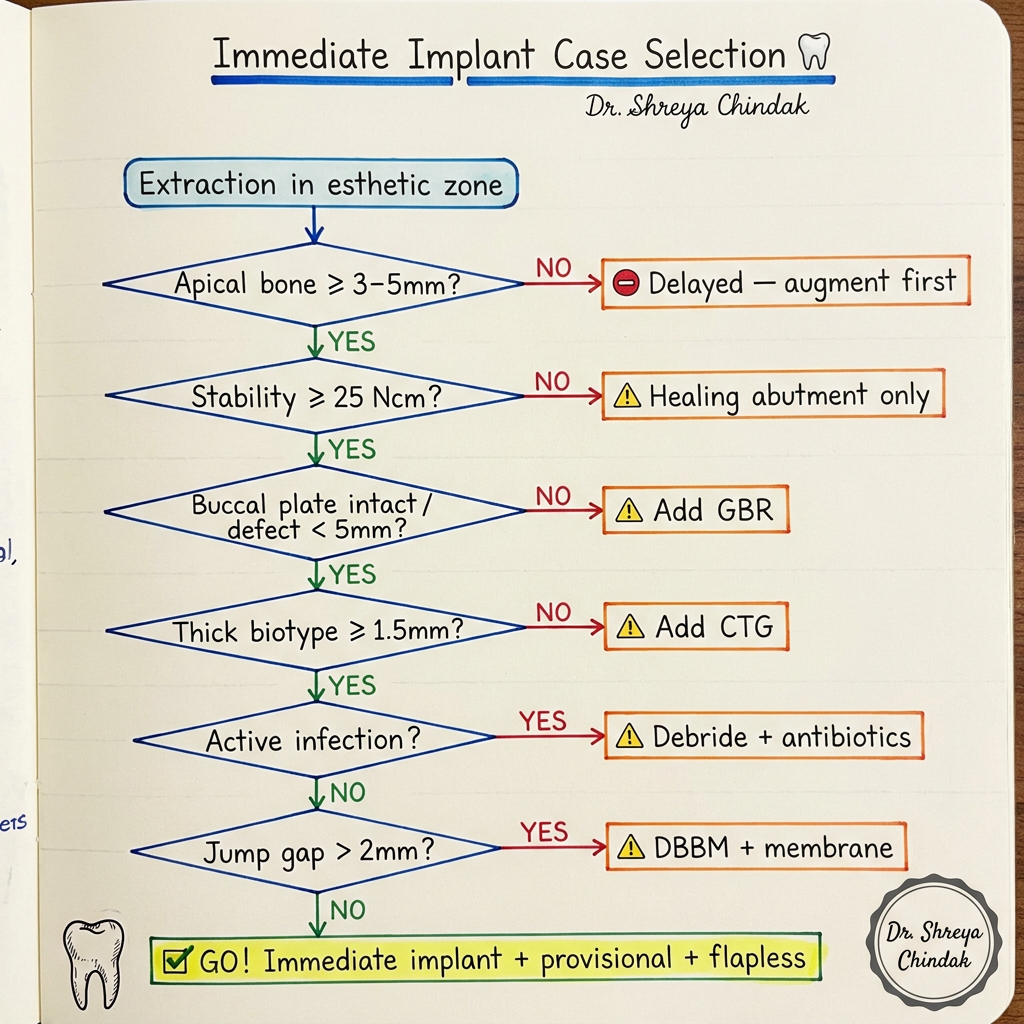 Immediate Implant Case Selection
Dr. Shreya Chindak
Extraction in esthetic zone
Apical bone ≥ 3–5mm?
NO
Delayed — augment first
YES
Stability ≥ 25 Ncm?
NO
Healing abutment only
YES
Buccal plate intact/
defect < 5mm?
NO
Add GBR
YES
Thick biotype ≥ 1.5mm?
NO
Add CTG
YES
Active infection?
YES
Debride + antibiotics
NO
Jump gap > 2mm?
YES
DBBM + membrane
NO
GO! Immediate implant + provisional + flapless
Dr. Shreya
Chindak